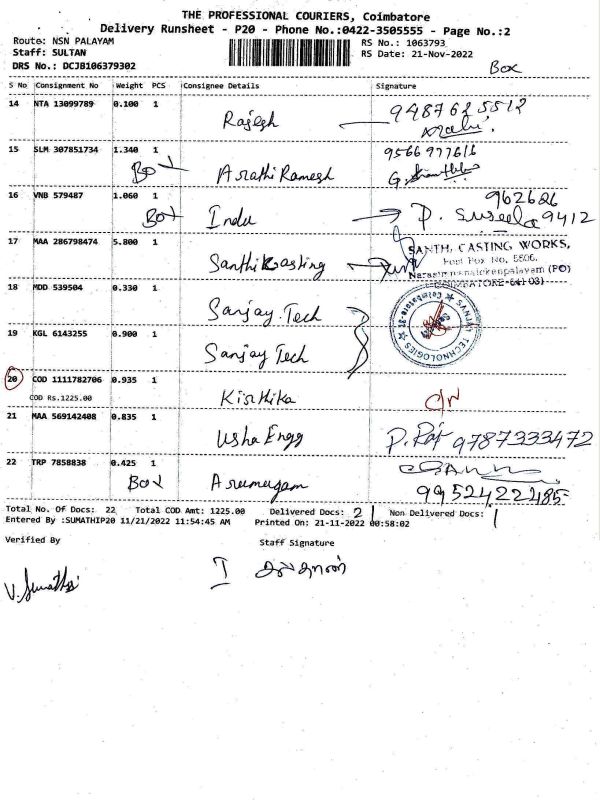 THE PROFESSIONAL COURIERS, Coimbatore
Delivery Runsheet - P20 - Phone No.:0422-3505555 - Page No.:2
Route: NSN PALAYAM RS No.: 1063793
Staff: SULTAN RS Date: 21-Nov-2022
DRS No.: DCJB106379302
Box
S No Consignment No Weight PCS Consignee Details Signature
14 NTA 13099789 0.100 1 Rajesh 9487625512
15 SLM 307851734 1.340 1 Box Arathi Ramesh 9566977616
16 VNB 579487 1.060 1 Box Indu P. Suseela 962626 9412
17 MAA 286798474 5.800 1 Santhi Casting
SANTHI CASTING WORKS,
Post Box No, 5506,
Narasimmanaickenpalayam (PO)
COIMBATORE-641 031
18 MDD 539504 0.330 1 Sanjay Tech
SANJAY TECHNOLOGIES ★ Coimbatore-31 ★
19 KGL 6143255 0.900 1 Sanjay Tech
20 COD 1111782706 0.935 1 Kirthika C/N
COD Rs.1225.00
21 MAA 569142408 0.835 1 Usha Engg P. Raj 9787333472
22 TRP 7858838 0.425 1 Box Arumugam
9952422485
Total No. Of Docs: 22 Total COD Amt: 1225.00 Delivered Docs: 21 Non Delivered Docs: 1
Entered By :SUMATHIP20 11/21/2022 11:54:45 AM Printed On: 21-11-2022 00:58:02
Verified By Staff Signature
V. Sumathi I சுல்தான்